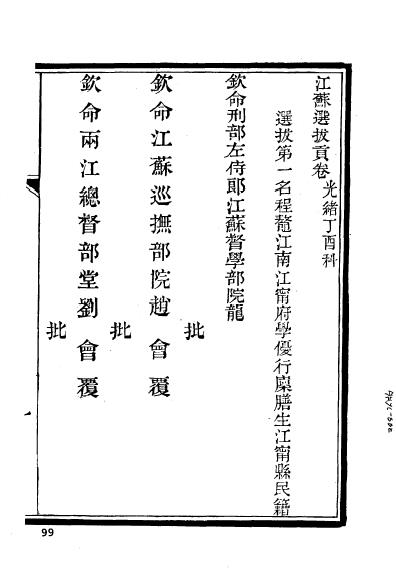 江蘇選拔貢卷光緒丁酉科
選拔第一名程鼇江南江甯府學優行廩膳生江甯縣民籍
欽命刑部左侍郎江蘇督學部院龍
批
欽命江蘇巡撫部院趙會覆
批
欽命兩江總督部堂劉會覆
批
99